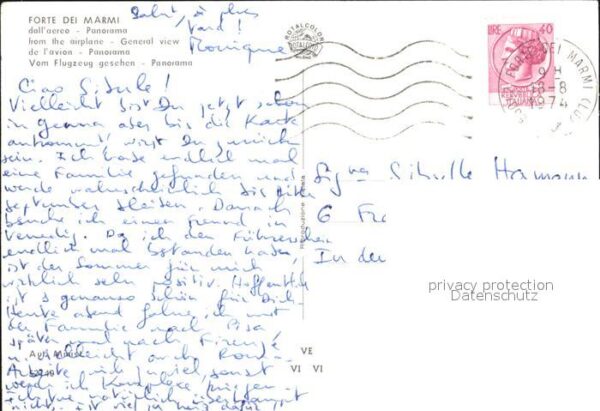 FORTE DEI MARMI
dall'aereo - Panorama
from the airplane - General view
de l'avion - Panorama
Vom Flugzeug gesehen - Panorama
Salut, à plus
tard!
Monique
ROTALCOLOR
LIRE 40
FORTE DEI MARMI
9 H
18-8
1974
Ciao Sibylle!
Vielleicht bist Du jetzt schon
in genua aber bis die Karte
ankommt wirst Du zurück
sein. Ich habe endlich mal
eine Familie gefunden und
werde wahrscheinlich bis Mitte
september bleiben. Danach
besuche ich einen Freund in
Venedig. Da ich den Führerschein
endlich mal bestanden habe,
ist der Sommer für mich
wirklich sehr positiv. Hoffentlich
ist's genauso schön für Dich.
Heute abend fahre ich mit
der Familie nach Pisa
später nach Firenze
u. vielleicht auch Rom.
Arbeite nicht viel, sonst
werde ich Komplexe kriegen.
Ich tue natürlich überhaupt
nichts, ist viel zu heiß dafür
Signa Sibylle Hermann
6 Fra
In der
privacy protection
Datenschutz
VE
VI VI